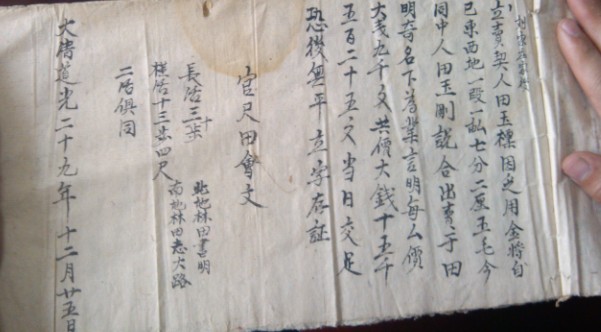 立賣契人田玉標因乏用金將自
己東西地一段一畝七分二厘五毛今
同中人田玉剛說合出賣于田
明奇名下為業言明每么價
大戋九千文共價大錢十五千
五百二十五文當日交足
恐後無平立字存証
官尺田會文
長活三十步
北地林田書明
橫活十三步四尺
南地林田志大路
二活俱同
大清道光二十九年十二月廿五日